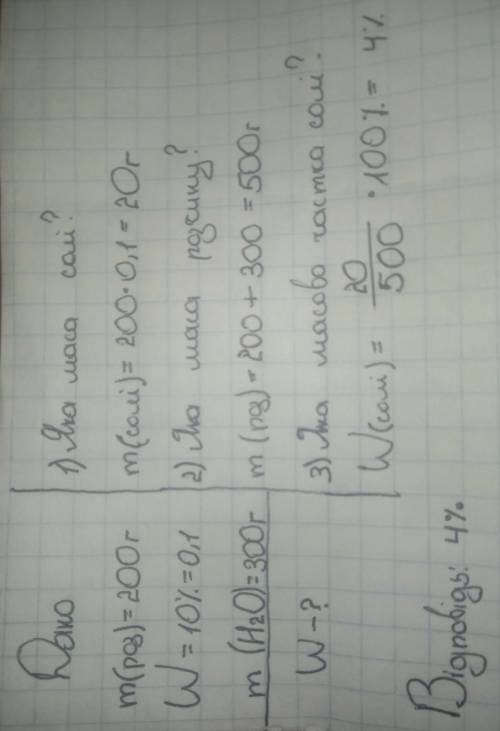 Дано
m(роз)=200г
W=10%=0,1
m(H2O)=300г
W-?
1) Яка маса солі?
m(солі)=200•0,1=20г
2) Яка маса розчину?
m(роз)=200+300=500г
3) Яка масова частка солі?
W(солі)=20/500•100%=4%
Відповідь: 4%